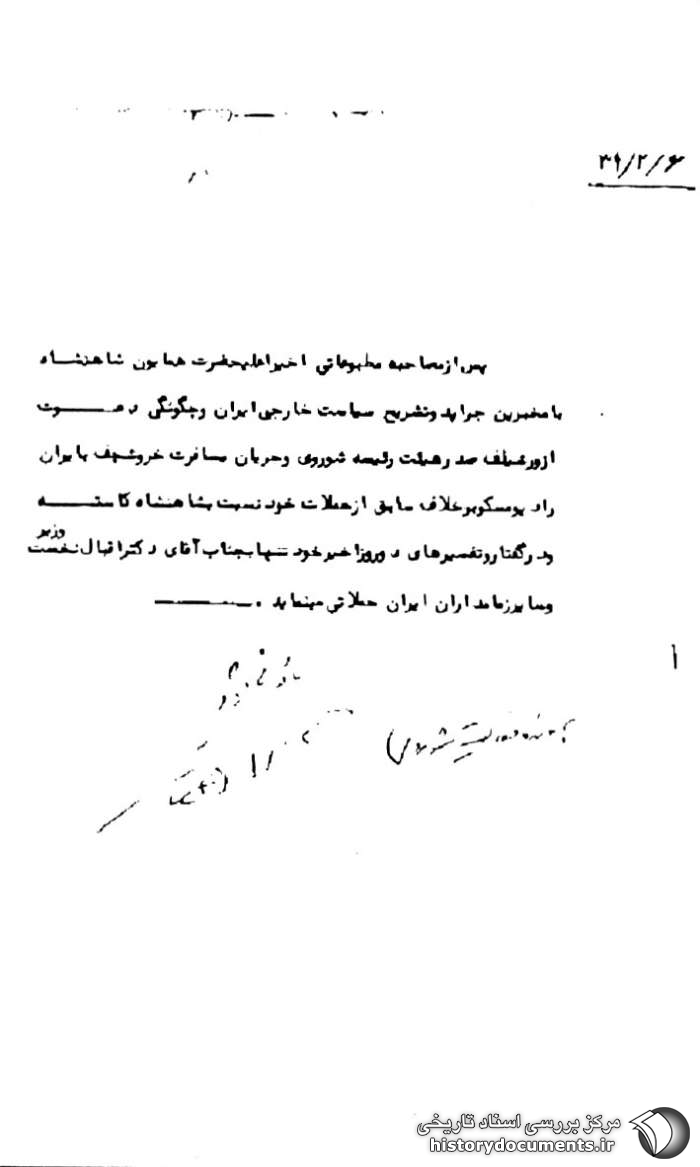 ۳۹/۲/۶
پس از مصاحبه مطبوعاتی اخیر اعلیحضرت همایون شاهنشاه
با مخبرین جراید و تشریح سیاست خارجی ایران و چگونگی دعوت
از ورشیلف صدر هیئت رئیسه شوروی و جریان مسافرت خروشچف بایران
رادیو مسکو برخلاف سابق از حملات خود نسبت بشاهنشاه کاسته
و در گفتار و تفسیرهای دو روز اخیر خود تنها بجناب آقای دکتر اقبال نخست وزیر
و سایر زمامداران ایران حملاتی مینماید .
مرکز بررسی اسناد تاریخی
historydocuments.ir